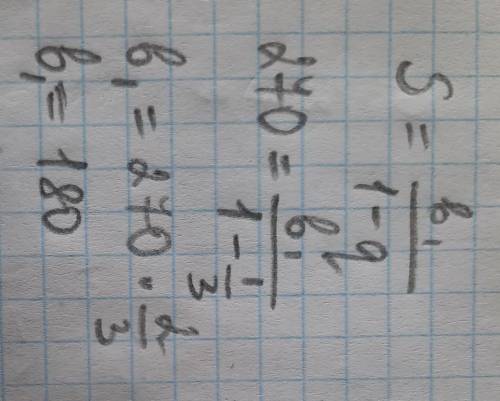 S = b₁/(1-q)
270 = b₁/(1-1/3)
b₁ = 270 · 2/3
b₁ = 180